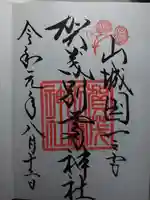 山城国一之宮
賀茂別雷神社
令和元年八月十三日